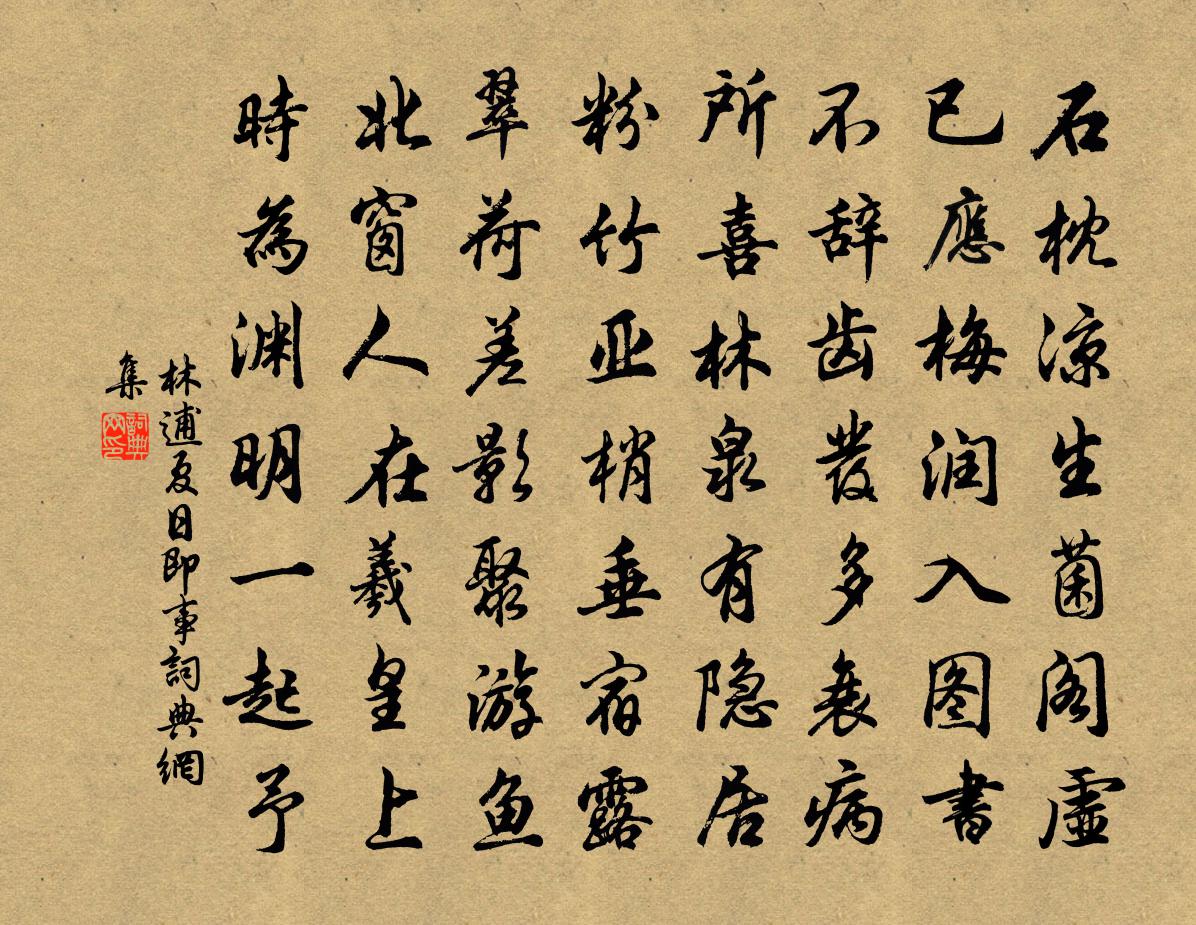 石枕凉生菌阁虚
已應梅润入图書
不辞齿發多衰病
所喜林泉有隐居
粉竹亚梢垂宿露
翠荷差影聚游鱼
北窗人在羲皇上
時為渊明一起予
林逋夏日即事詞典網
集
詞典
网印